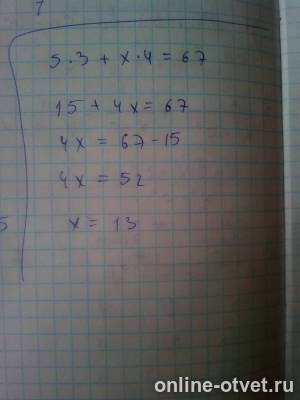 7
5·3 + x·4 = 67
15 + 4x = 67
4x = 67-15
4x = 52
5
x = 13
online-otvet.ru